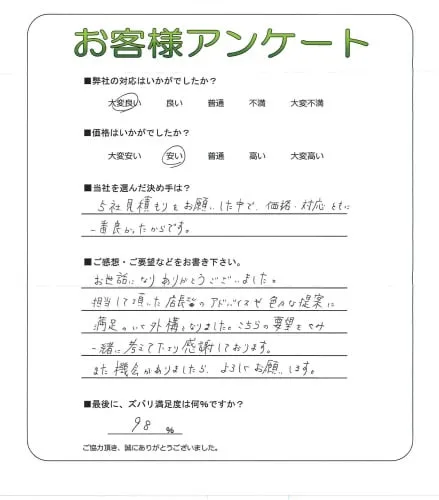 お客様アンケート
■弊社の対応はいかがでしたか?
大変良い 良い 普通 不満 大変不満
■価格はいかがでしたか?
大変安い 安い 普通 高い 大変高い
■当社を選んだ決め手は?
5社見積もりをお願いした中で、価格・対応ともに
一番良かったからです。
■ご感想・ご要望などをお書き下さい。
お世話になりありがとうございました。
担当して頂いた店長のアドバイスや色々な提案に
満足のいく外構となりました。こちらの要望を
一緒に考えて下さり感謝しております。
また機会がありましたら、よろしくお願いします。
■最後に、ズバリ満足度は何%ですか?
98 %
ご協力頂き、誠にありがとうございました。